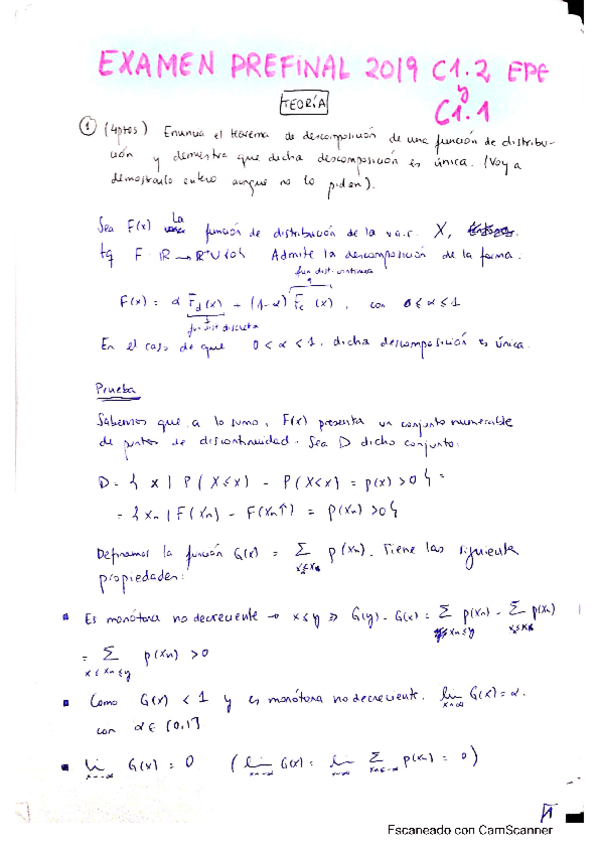 EXAMEN PREFINAL 2019 C1.2 EPE
y
C1.1
TEORÍA
① (4ptos) Enuncia el teorema de descomposición de una función de distribu-
ción y demuestra que dicha descomposición es única. (Voy a
demostrarlo entero aunque no lo piden).
Sea F(x) la función de distribución de la v.a.r. X,
tq F: R → R⁺∪{0} Admite la descomposición de la forma:
fun dist. continua
F(x) = α F_d(x) + (1-α) F_c(x), con 0≤α≤1
fun dist discreta
En el caso de que 0<α<1, dicha descomposición es única.
Prueba
Sabemos que a lo sumo, F(x) presenta un conjunto numerable
de puntos de discontinuidad. Sea D dicho conjunto:
D = { x | P(X≤x) - P(X<x) = p(x) >0 } =
= { xn | F(xn) - F(xn↑) = p(xn) >0 }
Definamos la función G(x) = Σ p(xn). Tiene las siguiente
propiedades:
▪ Es monótona no decreciente → x≤y ⇒ G(y) - G(x) = Σ xn≤y p(xn) - Σ p(xn)
= Σ x≤xn≤y p(xn) >0
▪ Como G(x) < 1 y es monótona no decreciente. lim x→∞ G(x) = α.
con α∈[0,1]
▪ lim x→-∞ G(x) = 0 (lim x→-∞ G(x) = lim Σ p(xn) = 0)
Escaneado con CamScanner